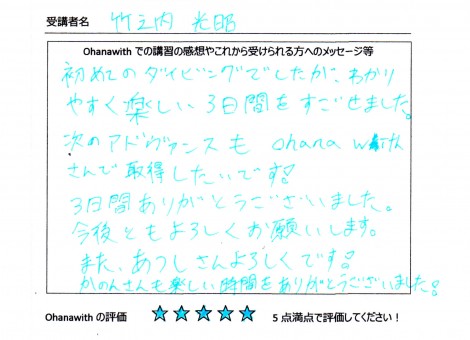 受講者名 竹之内 光昭
Ohanawith での講習の感想やこれから受けられる方へのメッセージ等
初めてのダイビングでしたが、わかり
やすく楽しい3日間をすごせました。
次のアドヴァンスも ohana with
さんで取得したいです!
3日間ありがとうございました。
今後ともよろしくお願いします。
また、あつしさんよろしくです!
かのんさんも楽しい時間をありがとうございました!
Ohanawith の評価 ★★★★★ 5点満点で評価してください!